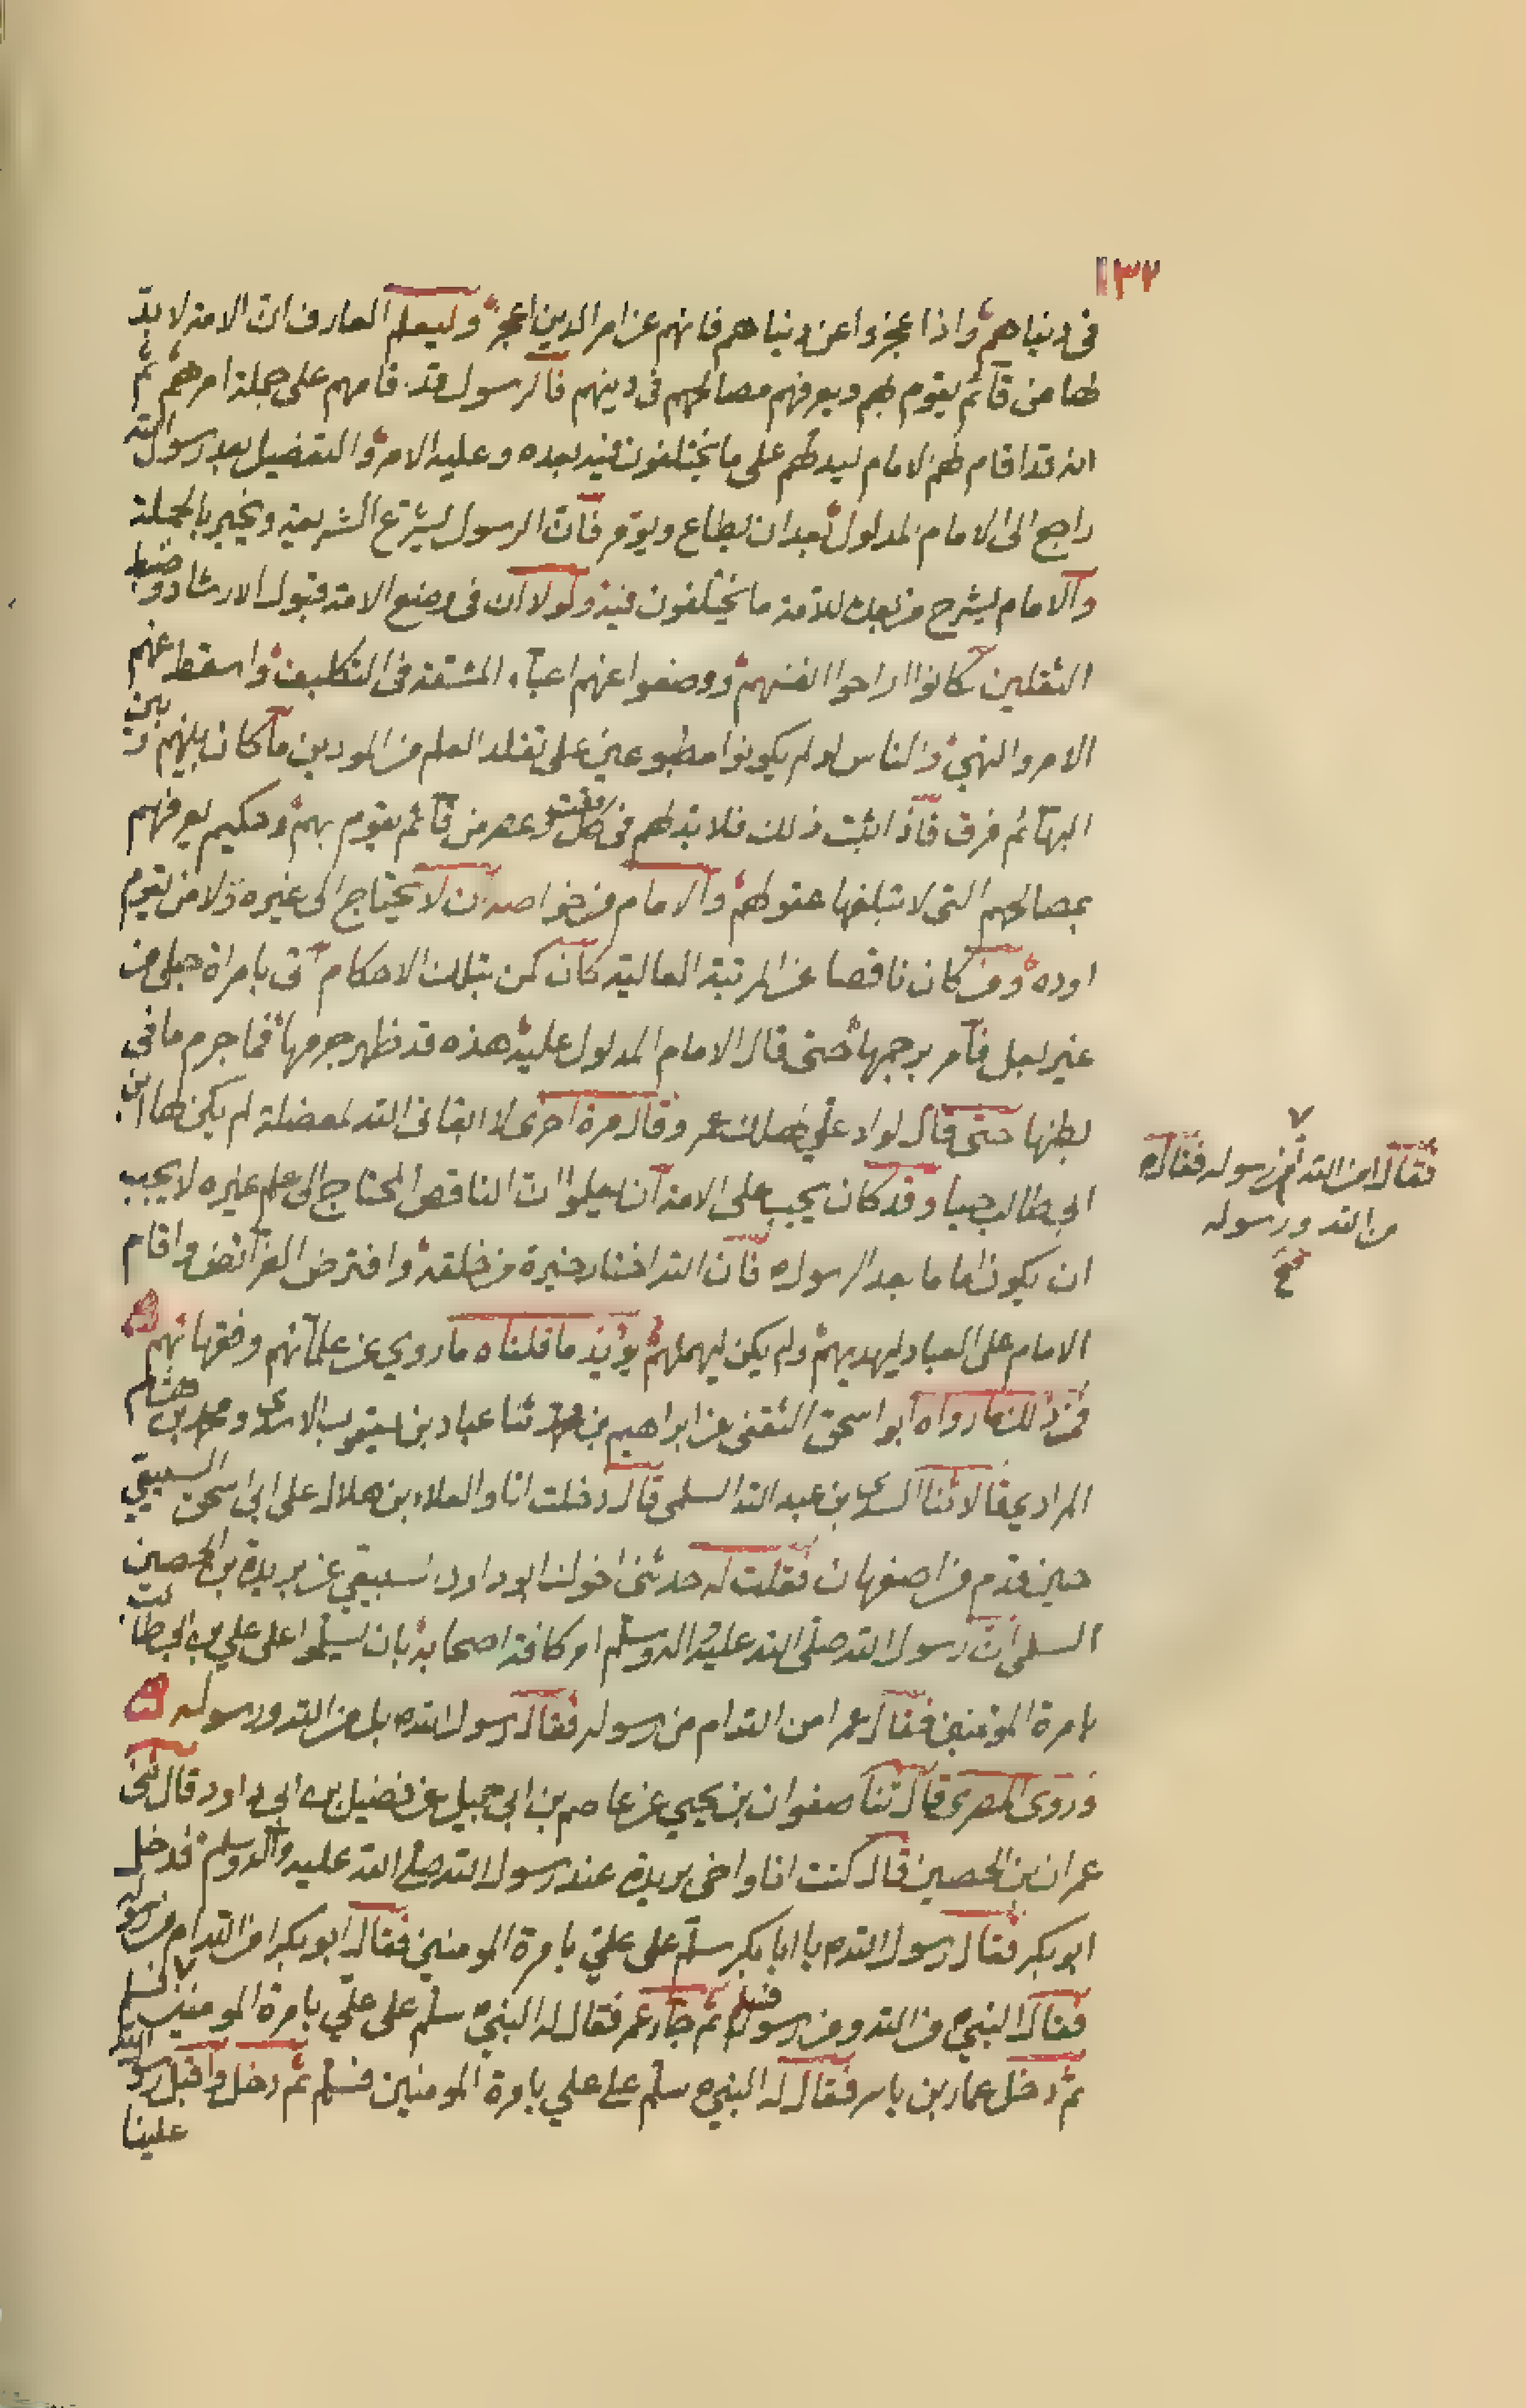 ١٣٢
في دنياهم واذا عجزوا عن دنياهم فانهم عن امر الدين اعجز وليعلم العارف ان الامة لا بدّ
لها من قائم يقوم بهم ويعرفهم مصالحهم في دينهم فالرسول قد اقامهم على جملة امرهم ثم
انه قد اقام لهم الامام ليدلهم على ما يختلفون فيه بعده وعليه الامر والتفضيل بعد رسول الله
راجع الى الامام المدلول بعد ان يطاع ويوقر فان الرسول ليشرع الشريعة ويخبر بالجملة
والامام ليشرح من بعده للامة ما يختلفون فيه ولولا ان في وضع الامة قبول الارشاد وضبط
الثقلين كانوا اراحوا انفسهم ووضعوا عنهم اعباء المشقة في التكليف واسقط عنهم
الامر والنهي والناس لو لم يكونوا مطبوعين على تقلد العلم من المودبين ما كان بينهم وبين
البهائم فرق فاذا ثبت ذلك فلا بد لهم في كل وقت وعصر من قائم يقوم بهم وحكيم يعرفهم
بمصالحهم التي لا تبلغها عقولهم والامام من خواصه ان لا يحتاج الى غيره ولا من يقوم
اوده ومن كان ناقصا عن المرتبة العالية كان كمن بتلك الاحكام اتى بامراة حبلى من
غير بعل فامر برجمها حتى قال الامام المدلول عليه هذه قد ظهر جرمها فما جرم ما في
بطنها حتى قال لولا علي لهلك عمر وقال مرة اخرى لا ابقاني الله لمعضلة لم يكن لها ابن
ابيطالب حيا وقد كان يجب على الامة ان يعلموا ان الناقص المحتاج الى علم غيره لا يجب
ان يكون اماما بعد الرسول فان الله اختار خيرة من خلقه وافترض الفرائض واقام
الامام على العباد ليهديهم ولم يكن ليهملهم يؤيد ما قلناه ما روي عن علمائهم وفقهائهم
فمن ذلك ما رواه ابو اسحق الثقفي عن ابراهيم بن محمد ثنا عباد بن يعقوب الاسدي ومحمد بن هشام
المرادي قالا ثنا السري بن عبد الله السلمي قال دخلت انا والعلاء بن هلال على ابي اسحق السبيعي
حين قدم من اصفهان فقلت له حدثني اخوك ابو داود السبيعي عن بريدة بن الحصين
السلمي ان رسول الله صلى الله عليه واله وسلم امر كافة اصحابه بان يسلموا على علي بن ابيطالب
بامرة المؤمنين فقال عمر امن الله ام من رسوله فقال رسول الله بل من الله ورسوله
وروى المصري قال ثنا صفوان بن يحيى عن عاصم بن ابي جميل عن فضيل بن ابي داود قال ثنى
عمران بن الحصين قال كنت انا واخي بريدة عند رسول الله صلى الله عليه واله وسلم فدخل
ابو بكر فقال رسول الله يا ابا بكر سلم على علي بامرة المومنين فقال ابو بكر امن الله ام من رسوله
فقال النبي من الله ومن رسوله فسلم ثم جاء عمر فقال له النبي سلم على علي بامرة المومنين فسلم
ثم دخل عمار بن ياسر فقال له النبي سلم على علي بامرة المومنين فسلم ثم دخل واقبل رسول الله
علينا
فقال امن الله ام من رسوله فقال
من الله ورسوله